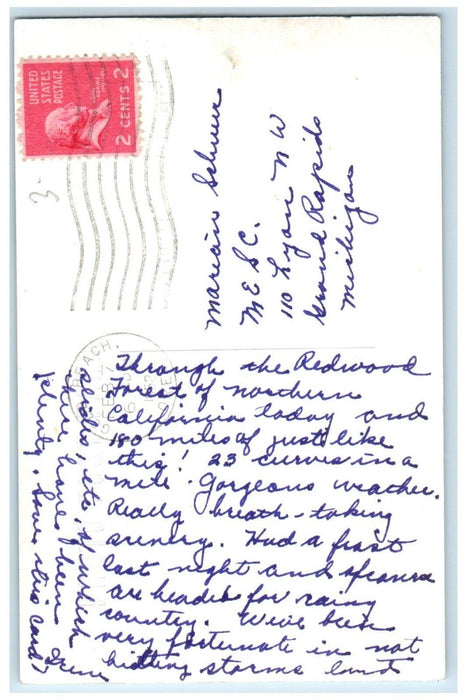 UNITED
STATES
POSTAGE
2 CENTS 2
3-
Marian
M E S C.
110 Lyon N W
Grand Rapids
Michigan
BEACH,
FEB
Through the Redwood
Forest of northern
California today and
180 miles of just like
this! 23 curves in a
mile. Gorgeous weather.
Really breath-taking
scenery. Had a frost
last night and
are headed for rainy
country. We've been
very fortunate in not
hitting storms land
slides, etc, of which
there have been
plenty. Save this card!
Irene